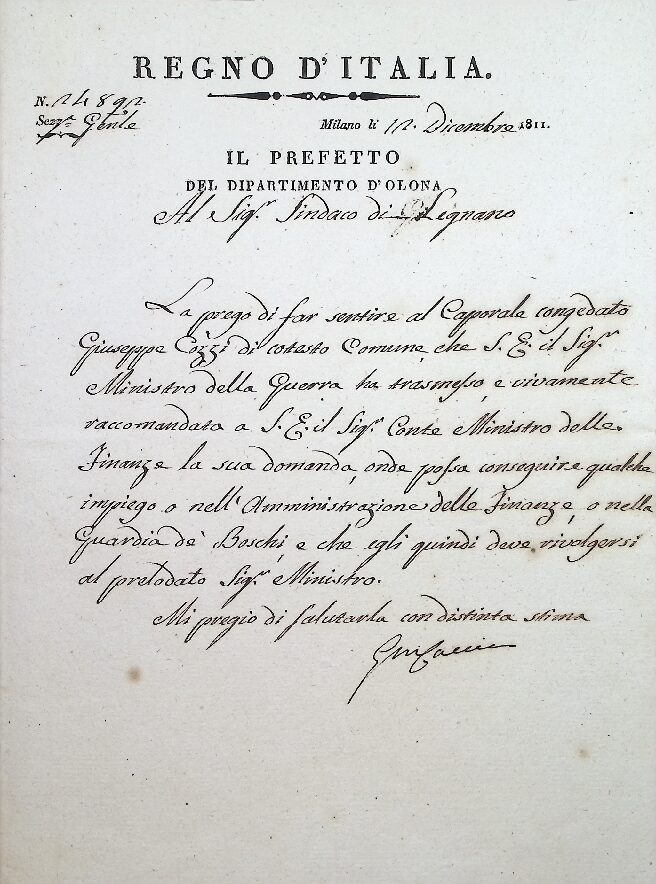 REGNO D'ITALIA.
N. 24892.
Sez.e Gen.le
Milano li 12. Dicembre 1811.
IL PREFETTO
DEL DIPARTIMENTO D'OLONA
Al Sig.r Sindaco di Legnano
La prego di far sentire al Caporale congedato
Giuseppe Cozzi di cotesto Comune, che S. E. il Sig.r
Ministro della Guerra ha trasmesso, e vivamente
raccomandata a S. E. il Sig.r Conte Ministro delle
Finanze la sua domanda, onde possa conseguire qualche
impiego o nell'Amministrazione delle Finanze, o nella
Guardia de' Boschi, e che egli quindi deve rivolgersi
al prelodato Sig.r Ministro.
Mi pregio di salutarla con distinta stima